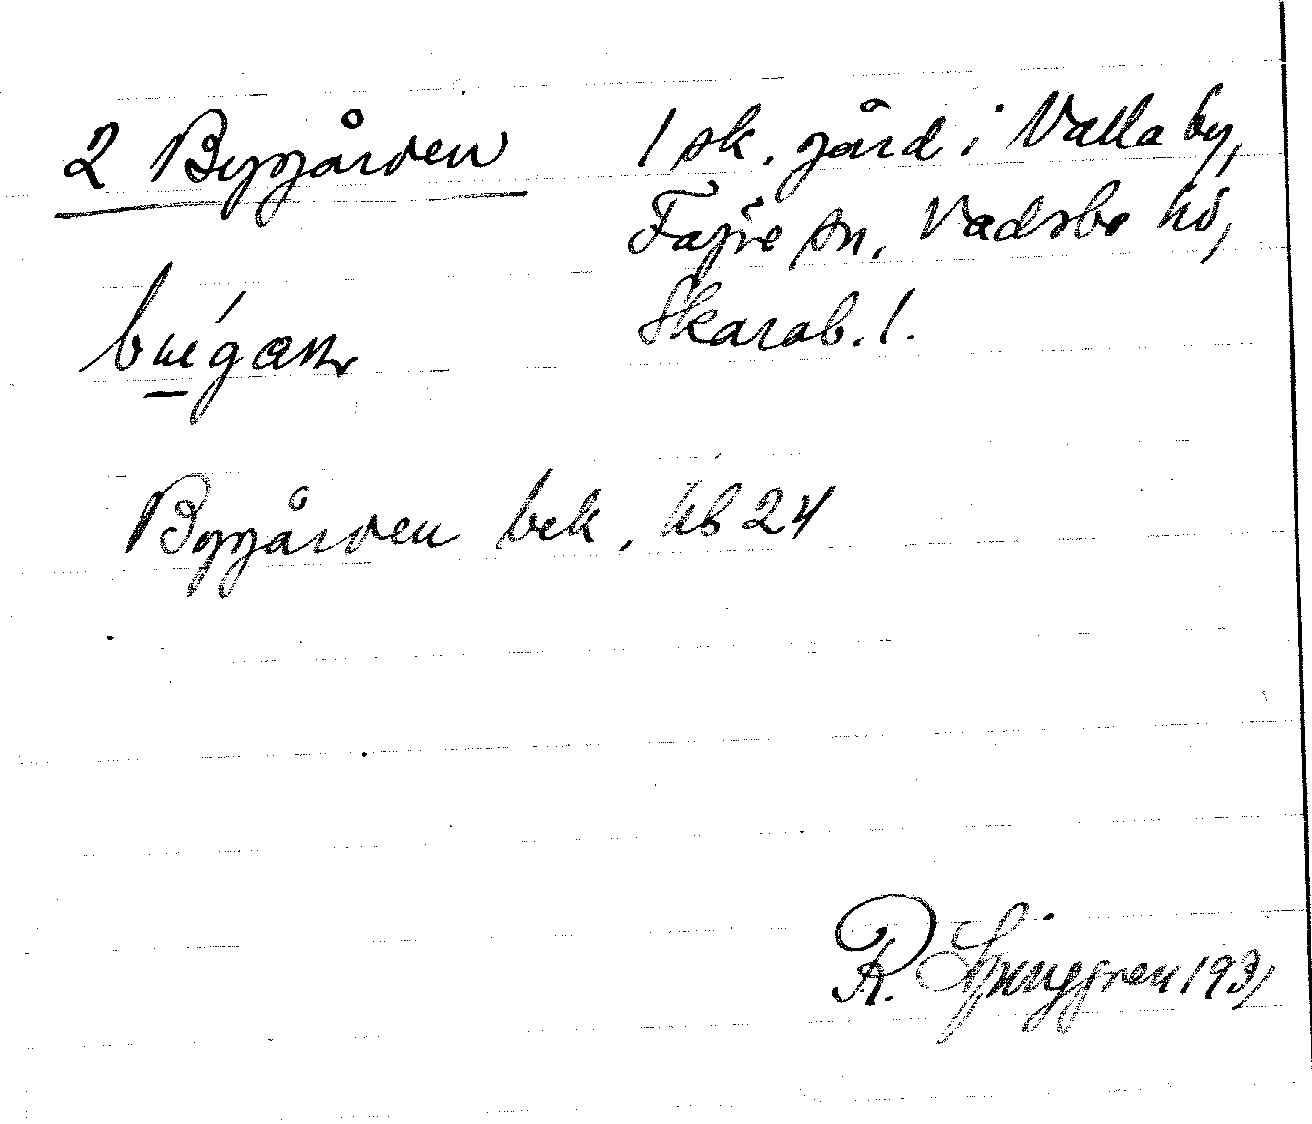 2 Bygården
1 sk. gård i Valla by,
Fägre sn, Vadsbo hd,
Skarab. l.
Bygården bek, hb 24
R. Ljunggren 1931